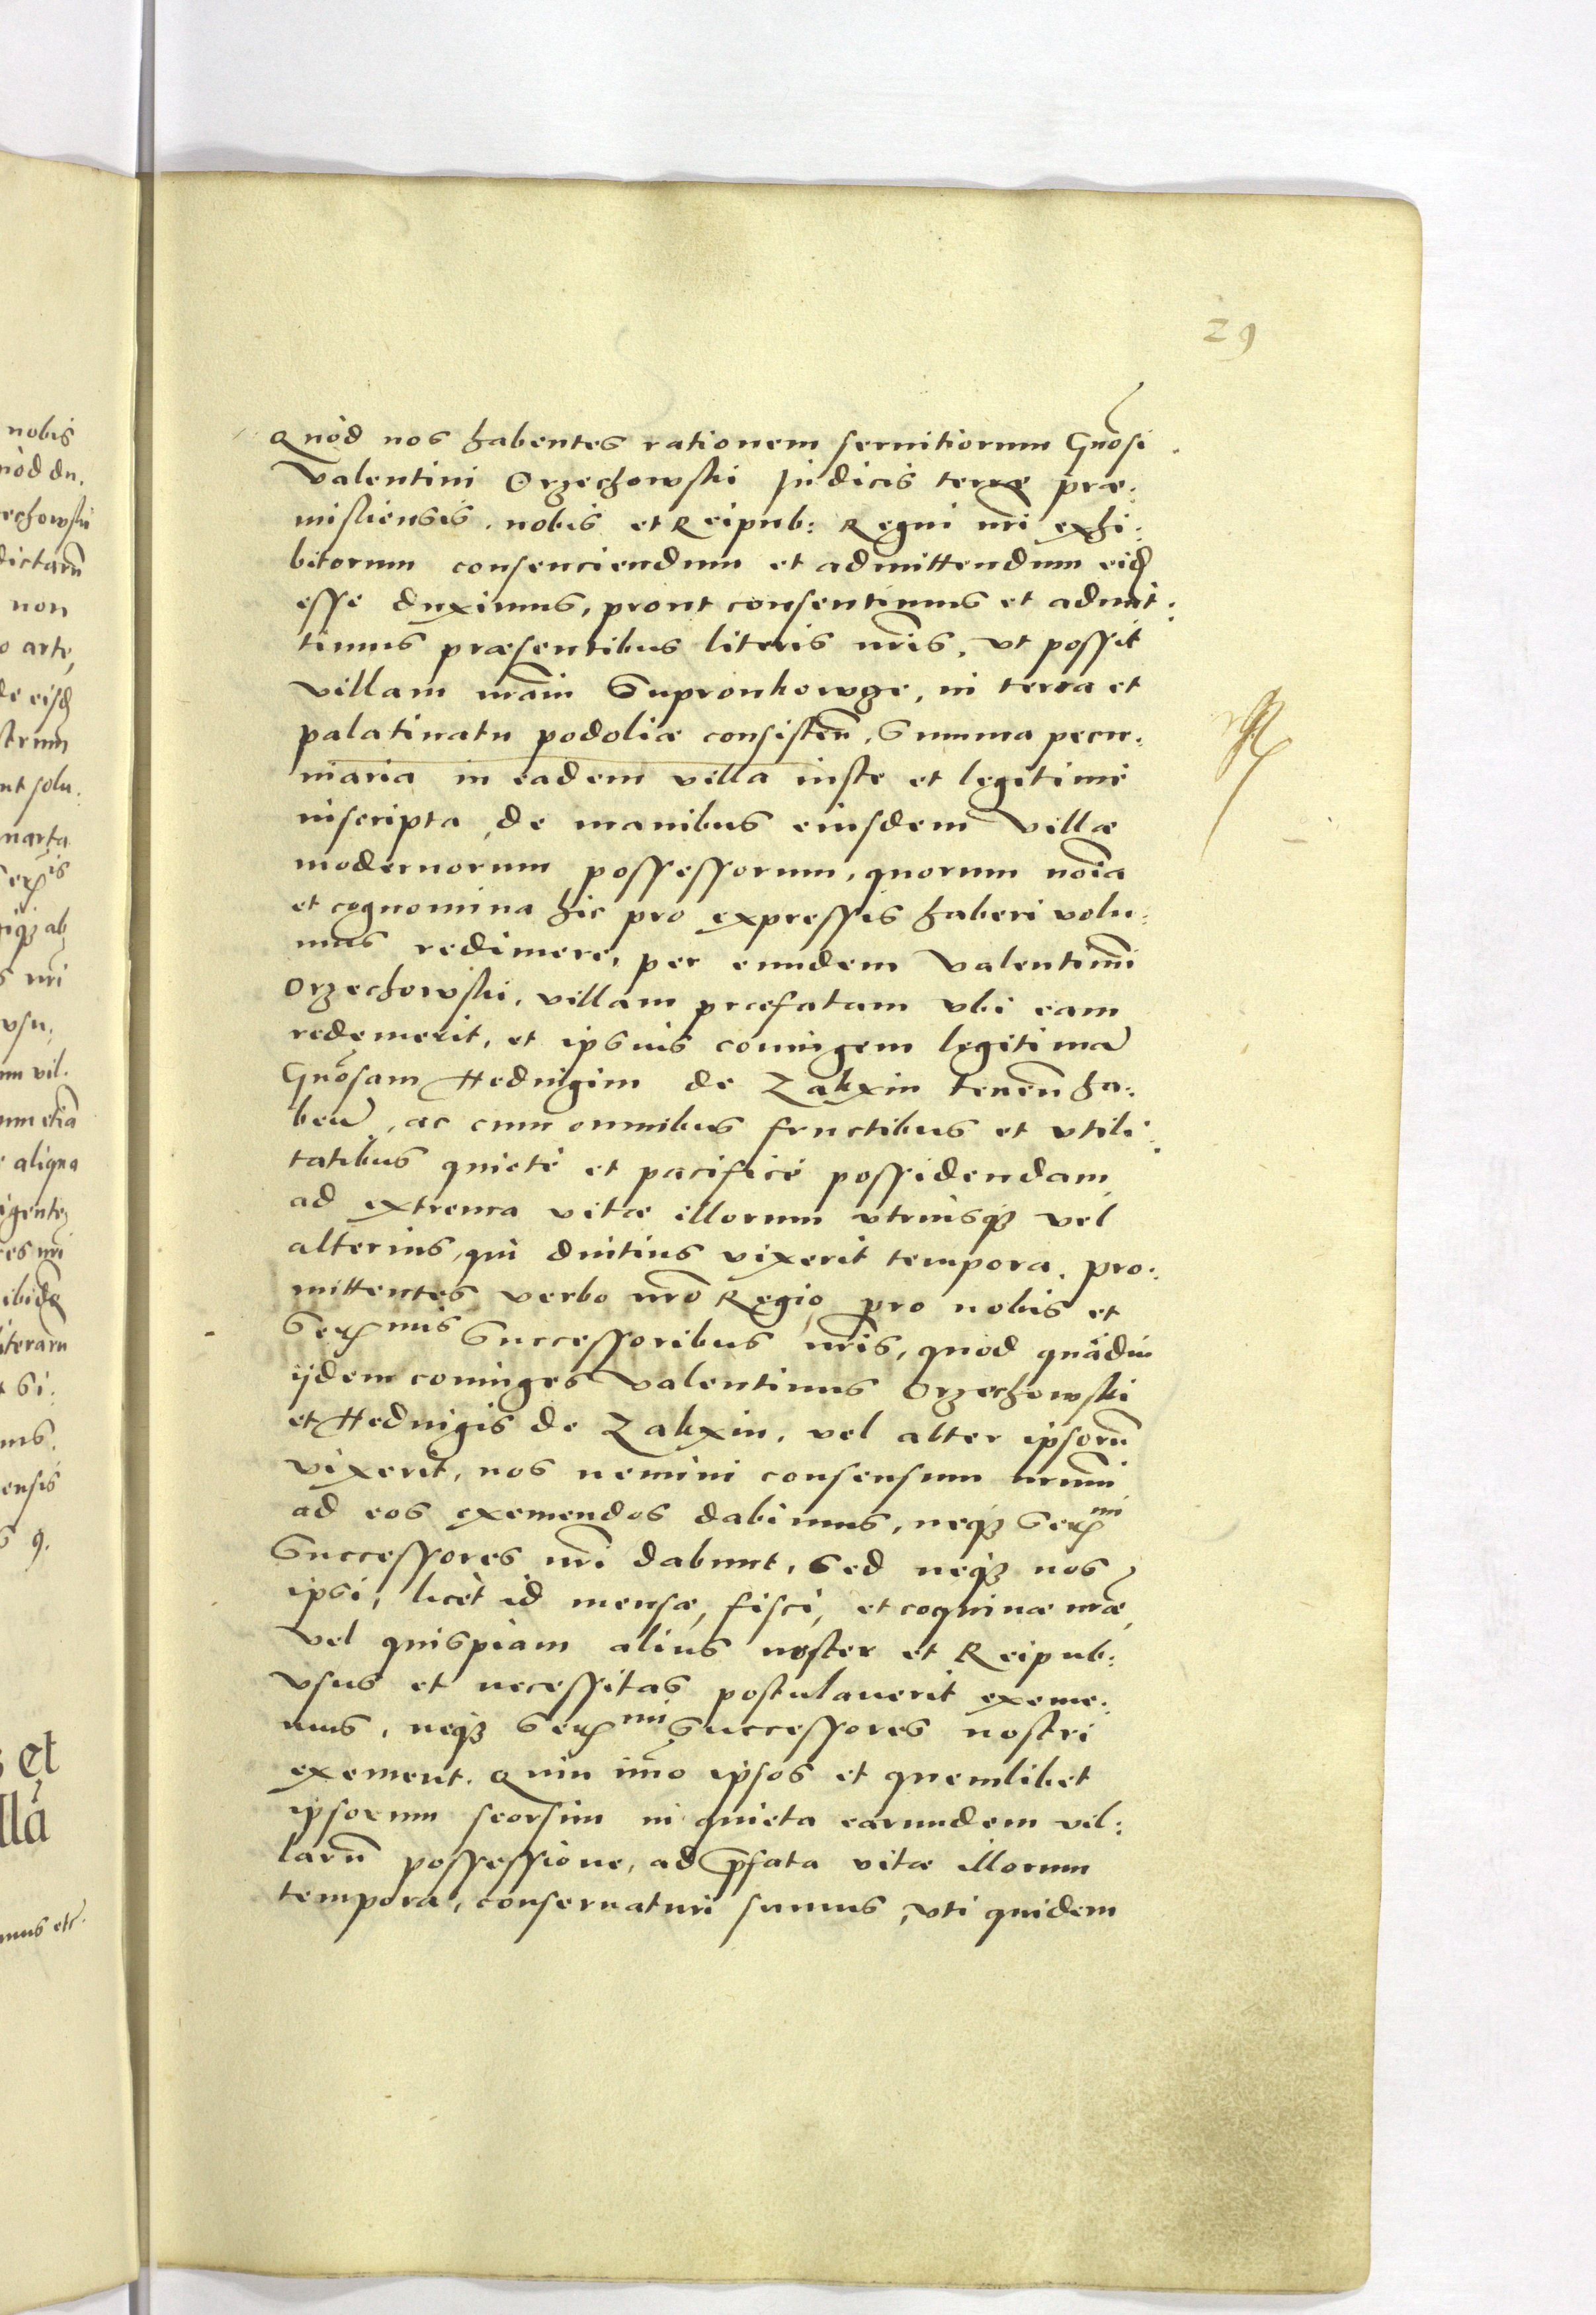 29
Quòd nos habentes rationem seruitiorum Gnõsi
Valentini Orzechowski Judicis terræ præ:
misliensis, nobis et Reipub: Regni nr̃i exhi:
bitorum consenciendum et admittendum eid
esse duximus, prout consentimus et admit:
timus præsentibus literis nr̃is, vt possit
villam nr̃am Supronkowge, in terra et
palatinatu podoliæ consisteñ, Summa pecu:
niaria in eadem villa iuste et legitime
inscripta, de manibus eiusdem villæ
modernorum possessorum, quorum noĩa
et cognomina hic pro expressis haberi volu:
mus redimere, per eundem Valentinũ
Orzechowski, villam præfatam vbi eam
redemerit, et ipsius coniugem legitimã
Gnõsam Heduigim de Zakxin teneñ ha:
beñ, ac cum omnibus fructibus et vtili:
tatibus quietè et pacificè possidendam,
ad extrema vitæ illorum vtriusq3 vel
alterius, qui diutius vixerit tempora, pro:
mittentes verbo nr̃o Regio, pro nobis et
Serx̃mis Successoribus nr̃is, quod quãdiu
ijdem coniuges Valentinus Orzechowski
et Hedwigis de Zakxin, vel alter ipsorũ
vixerit, nos nemini consensum nrũm
ad eos exemendos dabimus, neq3 Serx̃mi
Successores nr̃i dabunt, Sed neq3 nos
ipsi, licèt id mensæ, fisci, et coquinæ nr̃æ,
vel quispiam alius noster et Reipub:
vsus et necessitas postulauerit exeme:
mus, neq3 Serx̃mi Successores nostri
exement. Quin im̃o ipsos et quemlibet
ipsorum seorsim in quieta earundem vil:
larũ possessione, ad p̃fata vitæ illorum
tempora, conseruaturi sumus, vti quidem